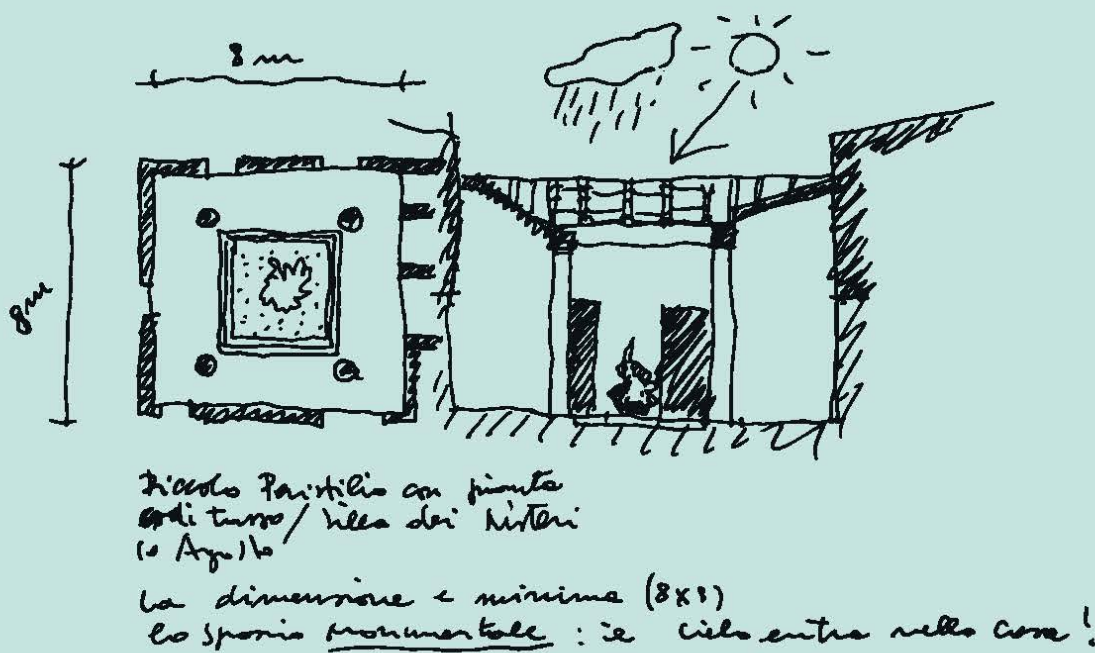 8 m
8 m
Piccolo Peristilio con pianta
di tasso / Villa dei Misteri
10 Agosto
la dimensione è minima (8x8)
lo spazio monumentale : il cielo entra nella casa !